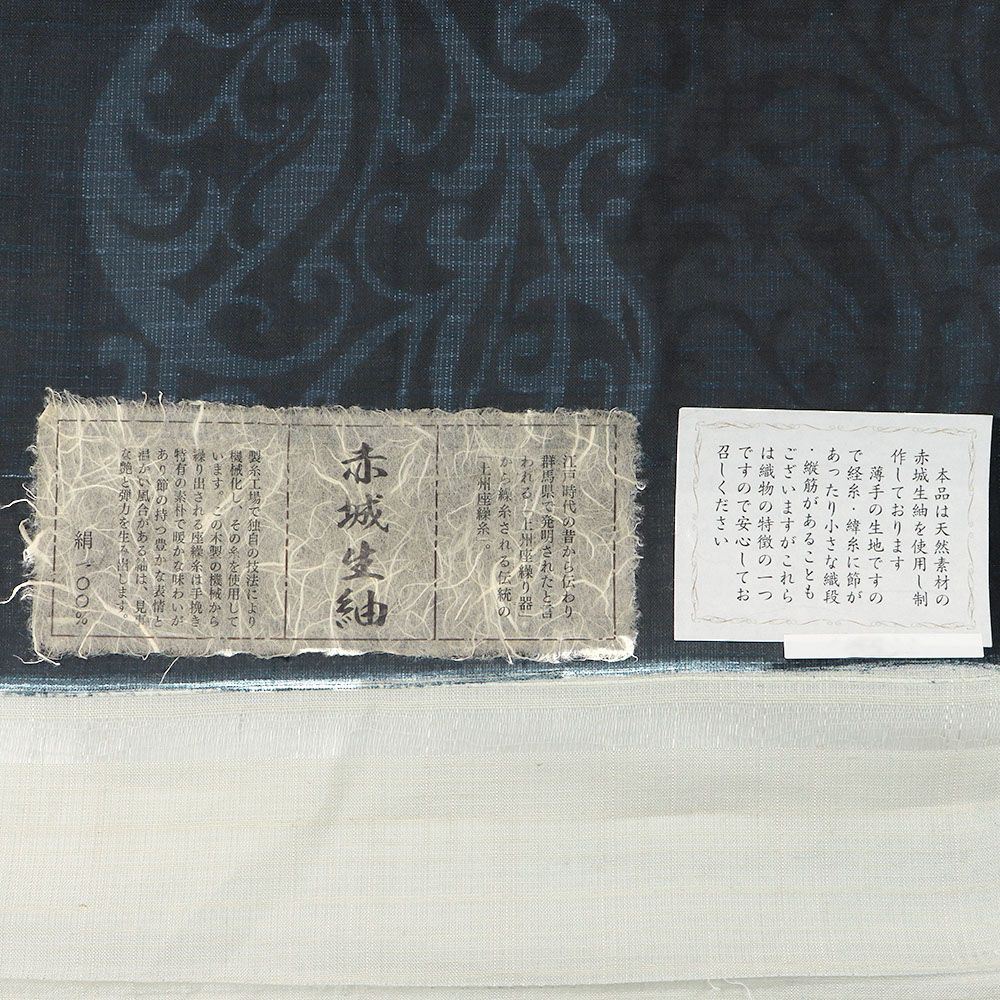 江戸時代の昔から伝わり
群馬県で発明されたと言
われる「上州座繰り器」
から繰糸される伝統の
「上州座繰糸」。
赤城生紬
製糸工場で独自の技法により
機械化し、その糸を使用して
います。この木製の機械から
繰り出される座繰糸は手挽き
特有の素朴で暖かな味わいが
あり節の持つ豊かな表情と
温かい風合がある紬は、見事
な艶と弾力を生み出します。
絹一〇〇%
本品は天然素材の
赤城生紬を使用し制
作しております
薄手の生地ですの
で経糸・緯糸に節が
あったり小さな織段
・縦筋があることも
ございますがこれら
は織物の特徴の一つ
ですので安心してお
召しください